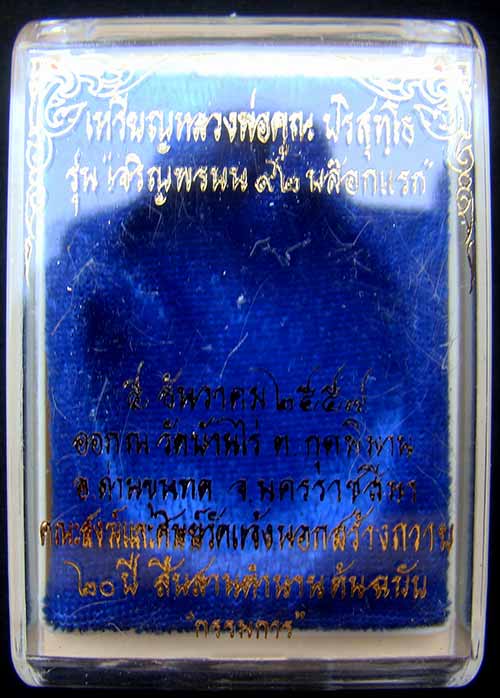 เหรียญหลวงพ่อคูณ ปริสุทฺโธ
รุ่น "เจริญพรบน ๙๒ บล๊อกแรก"
๕ ธันวาคม ๒๕๕๗
ออก ณ วัดบ้านไร่ ต.กุดพิมาน
อ.ด่านขุนทด จ.นครราชสีมา
คณะสงฆ์และศิษย์วัดแจ้งนอกสร้างถวาย
๒๐ ปี สืบสานตำนานต้นฉบับ
"กรรมการ"